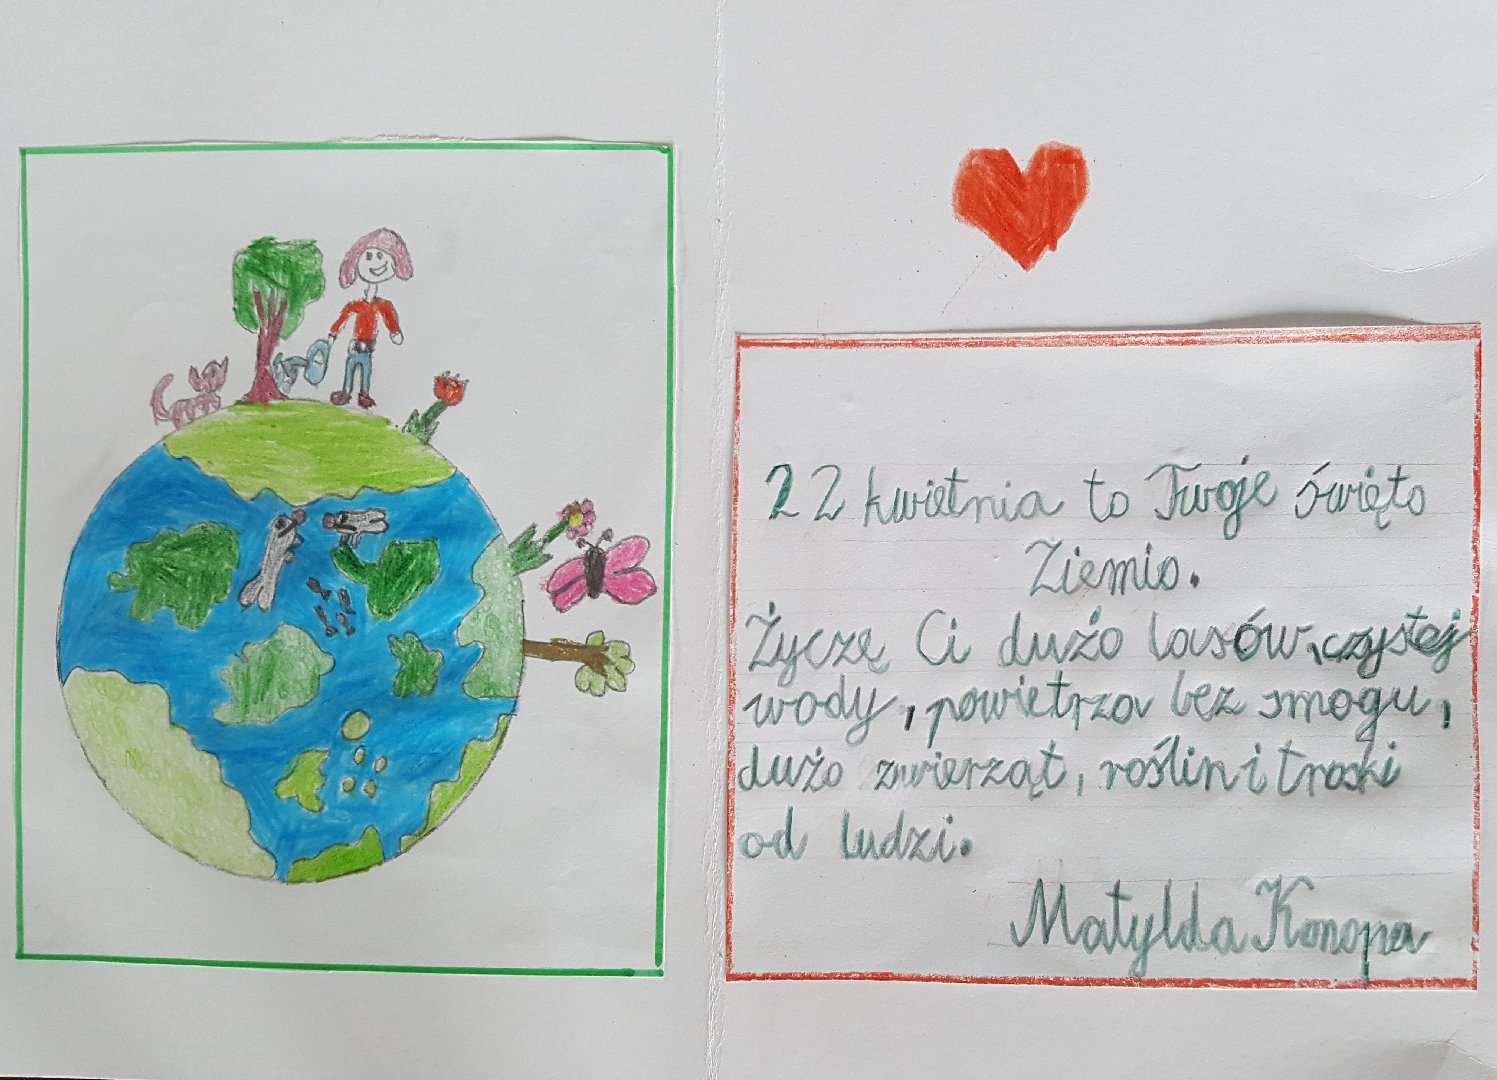 22 kwietnia to Twoje święto
Ziemio.
Życzę Ci dużo lasów, czystej
wody, powietrza bez smogu,
dużo zwierząt, roślin i troski
od ludzi.
Matylda Konopa